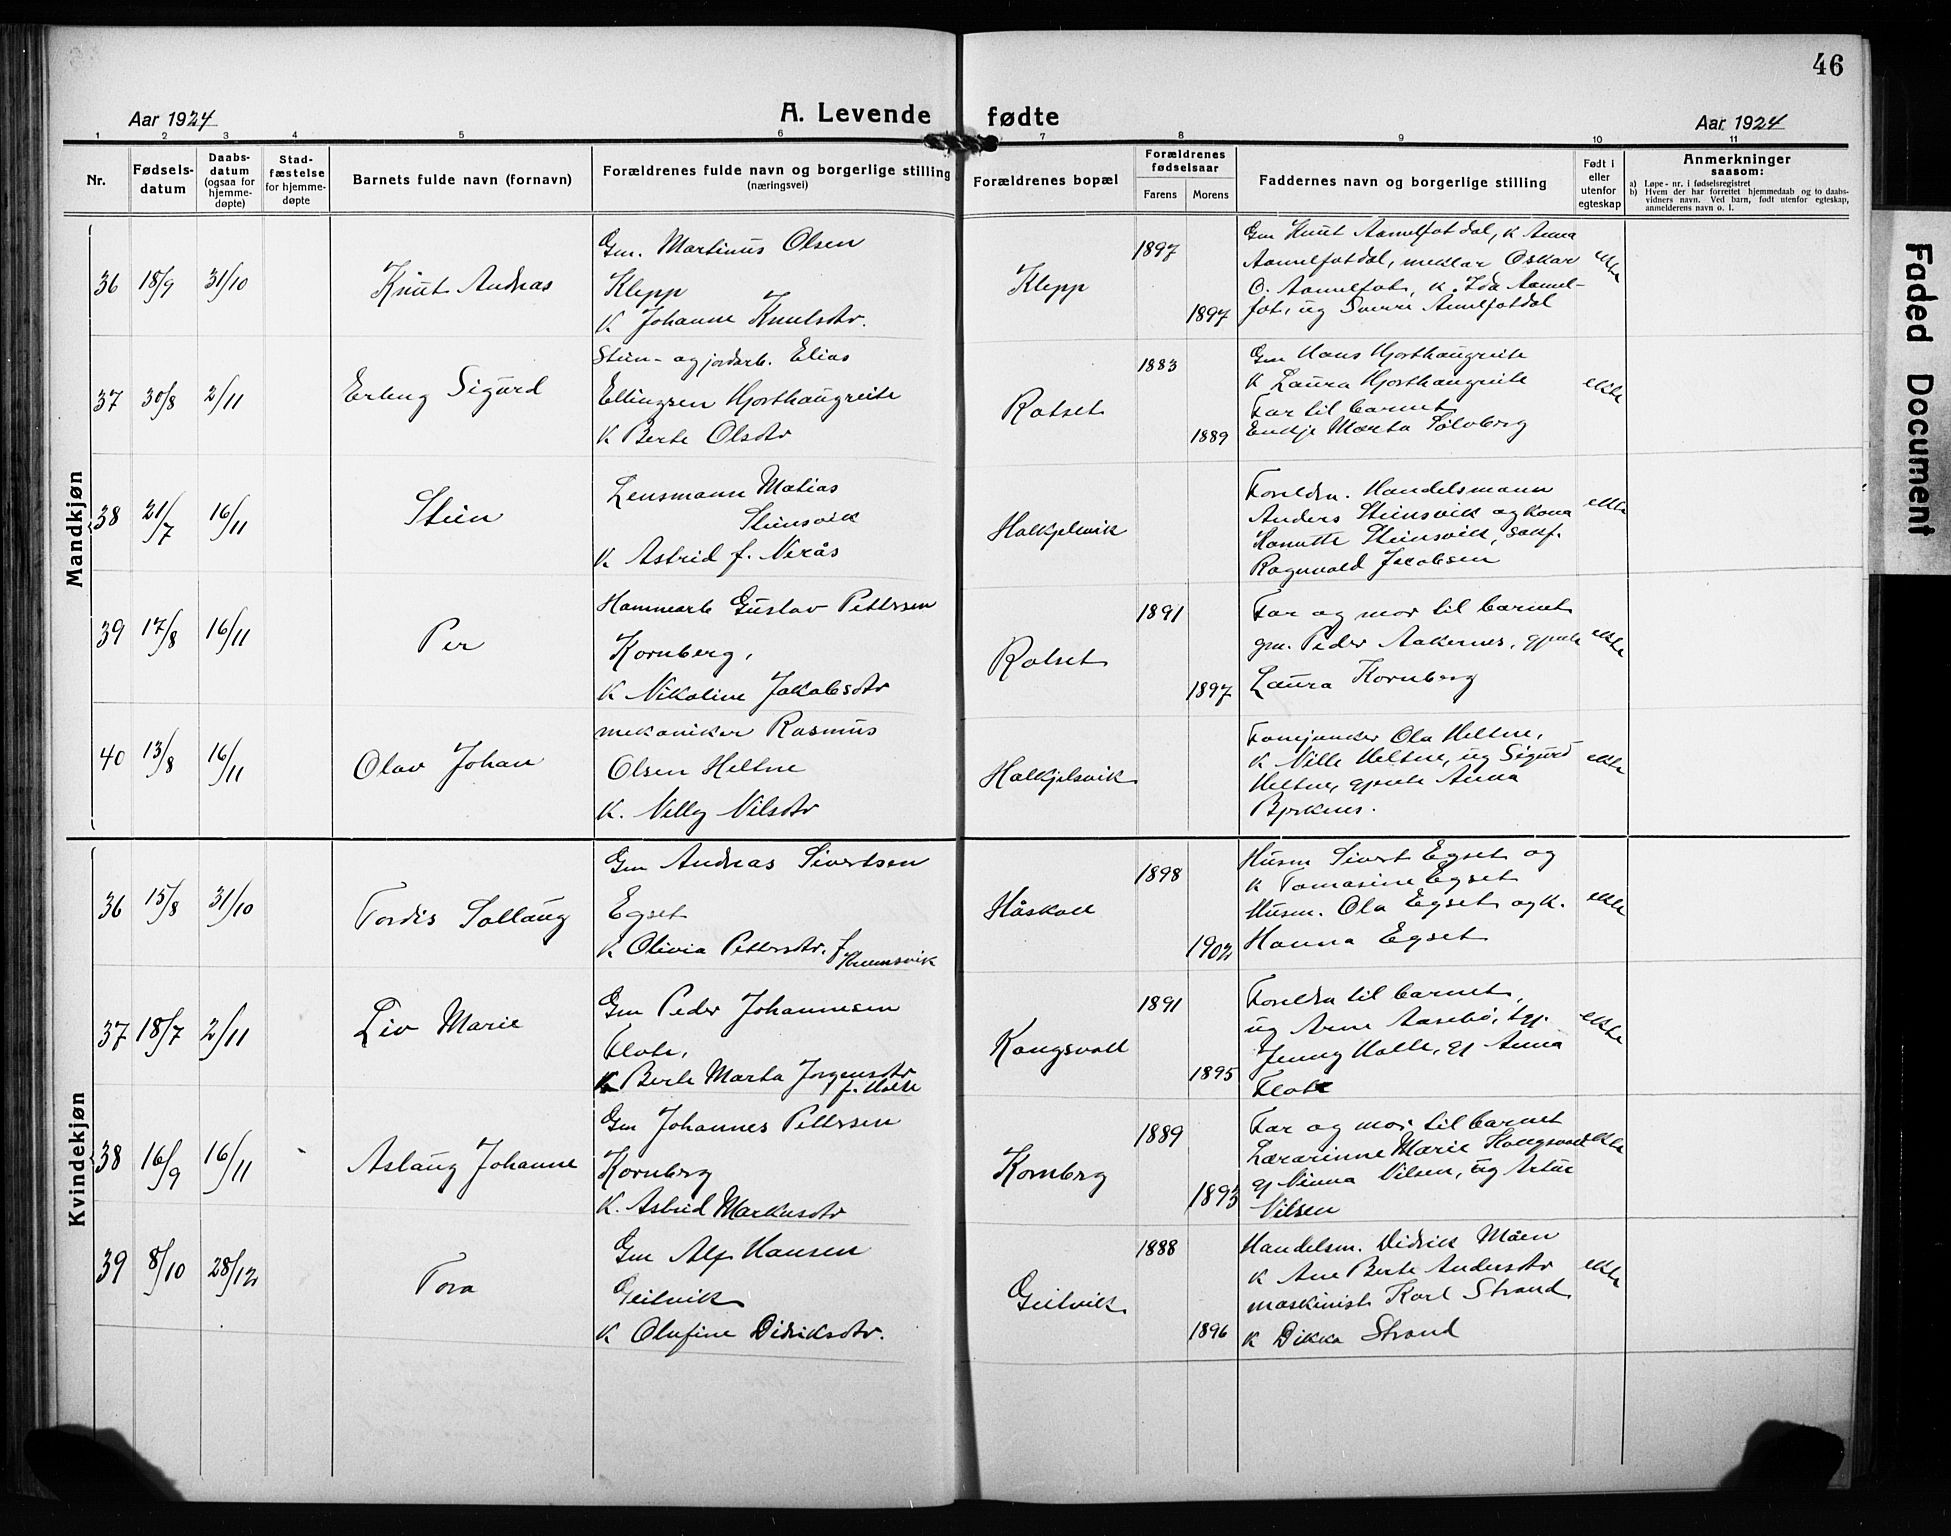 46
Aar 1924
A. Levende fødte
Aar 1924
1 2 3 4 5 6 7 8 9 10 11
Nr.
Fødsels-
datum
Daabs-
datum
(ogsaa for
hjemme-
døpte)
Stad-
fæstelse
for hjemme-
døpte
Barnets fulde navn (fornavn)
Forældrenes fulde navn og borgerlige stilling
(næringsvei)
Forældrenes bopæl
Forældrenes
fødselsaar
Farens Morens
Faddernes navn og borgerlige stilling
Født i
eller
utenfor
egteskap
Anmerkninger
saasom:
a) Løpe-nr. i fødselsregistret
b) Hvem der har forrettet hjemmedaab og to daabs-
vidners navn. Ved barn, født utenfor egteskap,
anmelderens navn o. l.
Mandkjøn
36 18/9 31/10
Knut Andreas
Gm. Martinus Olsen
Klepp
K Johanne Knutsdtr.
Klepp
1897
1897
Gm Knut Aamelfotdal, K Anna
Aamelfotdal, meklar Oskar
O. Aamelfot, K. Ida Aamel-
fot, ug Sverre Amelfotdal
ekte
37 30/8 2/11
Erling Sigurd
Stein- og jordarb. Elias
Ellingsen Hjorthaugreite
K Berte Olsdtr
Rotset
1883
1889
Gm Hans Hjorthaugreite
K Laura Hjorthaugreite
Far til barnet
Enkje Marta Sølvberg
ekte
38 21/7 16/11
Stein
Lensmann Matias
Steinsvik
K Astrid f. Nerås
Halkjelsvik
Foreldra. Handelsmann
Anders Steinsvik og kona
Hanutte Steinsvik, sakf.
Ragnvald Jacobsen
ekte
39 17/8 16/11
Per
Hammarb Gustav Pettersen
Kornberg,
K Nikoline Jakobsdtr
Rotset
1891
1897
Far og mor til barnet
gm. Peder Aakernes, gjenta
Laura Kornberg
ekte
40 13/8 16/11
Olav Johan
mekaniker Rasmus
Olsen Heltne
K. Nelly Nilsdtr
Halkjelsvik
Fanejunker Ola Heltne,
K Nille Heltne, ug Sigurd
Heltne, gjenta Anna
Bjerknes.
ekte
Kvindekjøn
36 15/8 31/10
Tordis Sollaug
Gm Andreas Sivertsen
Egset
K Olivia Pettersdtr. f
Håskoll
1898
1902
Husm Sivert Egset og
K Tomasine Egset
Husm. Ola Egset og K.
Hanna Egset
ekte
37 18/7 2/11
Liv Marie
Gm Peder Johannesen
Flote,
K Berte Marta Jørgensdtr
f. Holte
Kongsvoll
1891
1895
Foreldra til barnet,
ug Arne Aasebø,
Jenny Halle, gj Anna
Flote
ekte
38 16/9 16/11
Aslaug Johanne
Gm Johannes Pettersen
Kornberg
K. Astrid Markusdtr
Kornberg
1889
1893
Far og mor til barnet
Lærarinne Marie Kongsvoll
gj Ninna Nilsen, ug Artur
Nilsen
ekte
39 8/10 28/12
Tora
Gm Alf Hansen
Geilvik
K Olufine Didriksdtr.
Geilvik
1888
1896
Handelsm. Didrik Måen
K Ane Berte Andersdtr
maskinist Karl Strand
K Dikka Strand
ekte
Faded Document